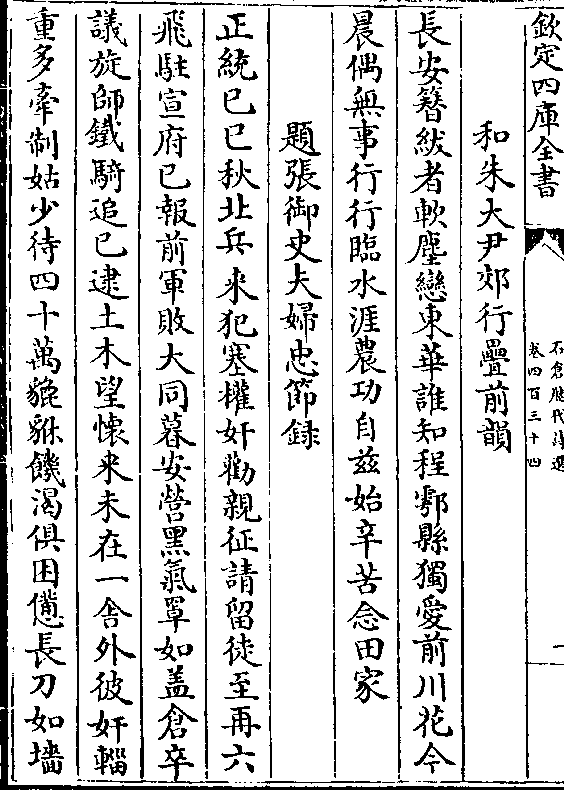 欽定四庫全書
石倉歷代詩選
卷四百三十四
一
和朱大尹郊行疊前韻
長安簪紱者軟塵戀東華誰知程鄠縣獨愛前川花今
晨偶無事行行臨水涯農功自兹始辛苦念田家
題張御史夫婦忠節録
正統己巳秋北兵来犯塞權奸勸親征請留徒至再六
飛駐宣府已報前軍敗大同暮安營黑氣罩如盖倉卒
議旋師鐵騎追已逮土木望懷来未在一舍外彼奸輜
重多牽制姑少待四十萬貔貅饑渴俱困憊長刀如墻